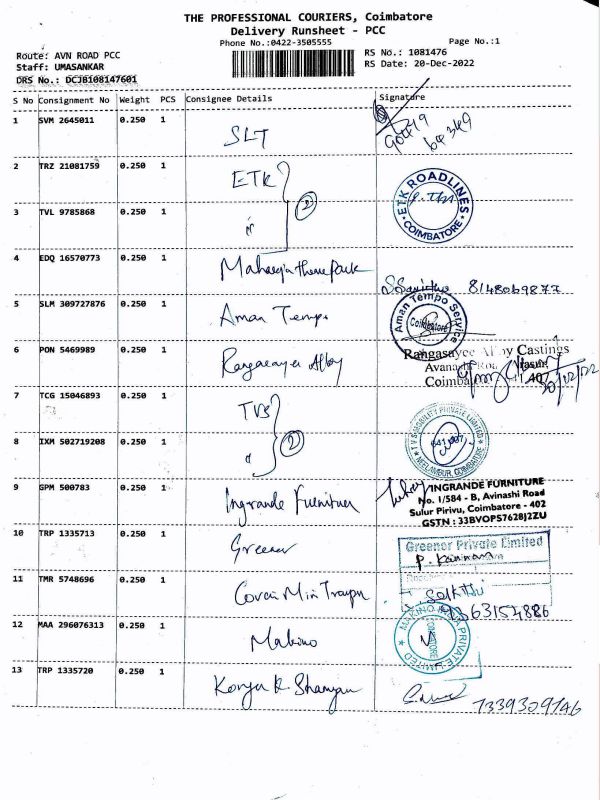 THE PROFESSIONAL COURIERS, Coimbatore
Delivery Runsheet - PCC
Phone No.:0422-3505555
Page No.:1
Route: AVN ROAD PCC
RS No.: 1081476
Staff: UMASANKAR
RS Date: 20-Dec-2022
DRS No.: DCJB108147601
S No Consignment No Weight PCS Consignee Details Signature
1 SVM 2645011 0.250 1 SLT
2 TRZ 21081759 0.250 1 ETK
ETK ROADLINES
COIMBATORE
3 TVL 9785868 0.250 1 " 2
4 EDQ 16570773 0.250 1 Maharaja theme Park
8148069877
5 SLM 309727876 0.250 1 Aman Tempo
Aman Tempo Service
Coimbatore
6 PON 5469989 0.250 1 Rangasayee Alloy
Rangasayee Alloy Castings
20/12/22
7 TCG 15046893 0.250 1 TVS
8 IXM 502719208 0.250 1 " 2
T V S MOBILITY PRIVATE LIMITED
NEELAMBUR, COIMBATORE
9 GPM 500783 0.250 1 Ingrande Furniture
INGRANDE FURNITURE
No. 1/584 - B, Avinashi Road
Sulur Pirivu, Coimbatore - 402
GSTN : 33BVOPS7628J2ZU
10 TRP 1335713 0.250 1 Greener
Greener Private Limited
11 TMR 5748696 0.250 1 Covai Mini
63154886
12 MAA 296076313 0.250 1 Makino
MAKINO INDIA PRIVATE LIMITED
COIMBATORE
13 TRP 1335720 0.250 1
7339309746